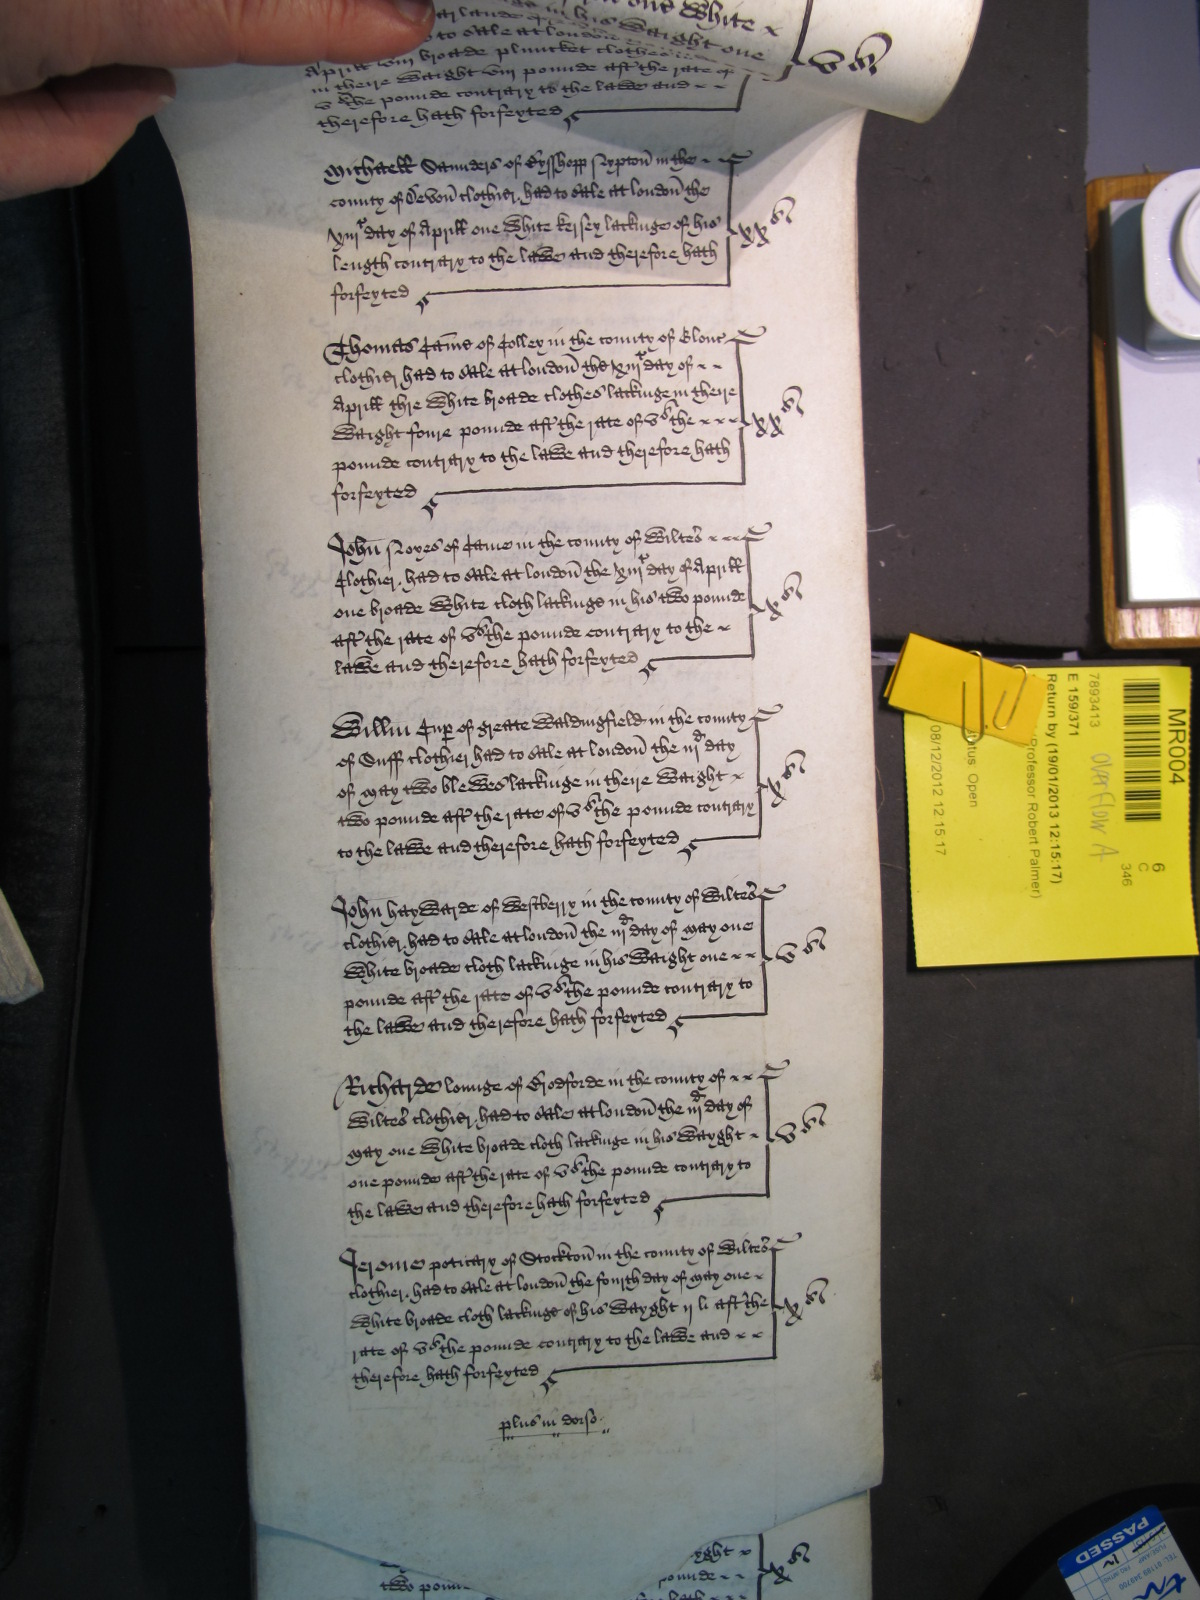 to sale at london
Aprill viii broade pluncket clothes
in theire Waight viii pounde aft the rate of
v s the pounde contrary to the lawe and
therefore hath forfeyted
v s
Michaell Saunders of Bysshopp Nypton in the
county of Devon clothier, had to sale at london the
xiii day of Aprill one White kersey lackinge of his
length contrary to the lawe and therefore hath
forfeyted
xx s
Thomas James of Colley in the county of Glouc
clothier had to sale at london the xiii day of
Aprill thre White broade clothes lackinge in theire
Waight foure pounde aft the rate of v s the
pounde contrary to the lawe and therefore hath
forfeyted
xx s
John Noyes of Came in the county of Wiltes
Clothier, had to sale at london the xiii day of Aprill
one broade White cloth lackinge in his two pounde
aft the rate of v s the pounde contrary to the
lawe and therefore hath forfeyted
x s
Willm Cup of greate Waldingfield in the county
of Suff clothier had to sale at london the iii day
of may two blewes lackinge in theire Waight
two pounde aft the rate of v s the pounde contrary
to the lawe and therefore hath forfeyted
x s
John hayWarde of Westberry in the county of Wiltes
clothier, had to sale at london the iii day of may one
White broade cloth lackinge in his Waight one
pounde aft the rate of v s the pounde contrary to
the lawe and therefore hath forfeyted
v s
Richarde lounge of Brodforde in the county of
Wiltes clothier, had to sale at london the iii day of
may one White broade cloth lackinge in his Wayght
one pounde aft the rate of v s the pounde contrary to
the lawe and therefore hath forfeyted
v s
Jerome poticary of Stockton in the county of Wiltes
clothier, had to sale at london the fourth day of may one
White broade cloth lackinge of his Wayght ii li aft the
rate of v s the pounde contrary to the lawe and
therefore hath forfeyted
x s
plus in dorso
yght
two poun
pounde
x s
MR004
6
C
346
7893413
OVERFLOW A
E 159/371
Return by (19/01/2013 12:15:17)
Professor Robert Palmer)
tus Open
08/12/2012 12:15:17
PASSED